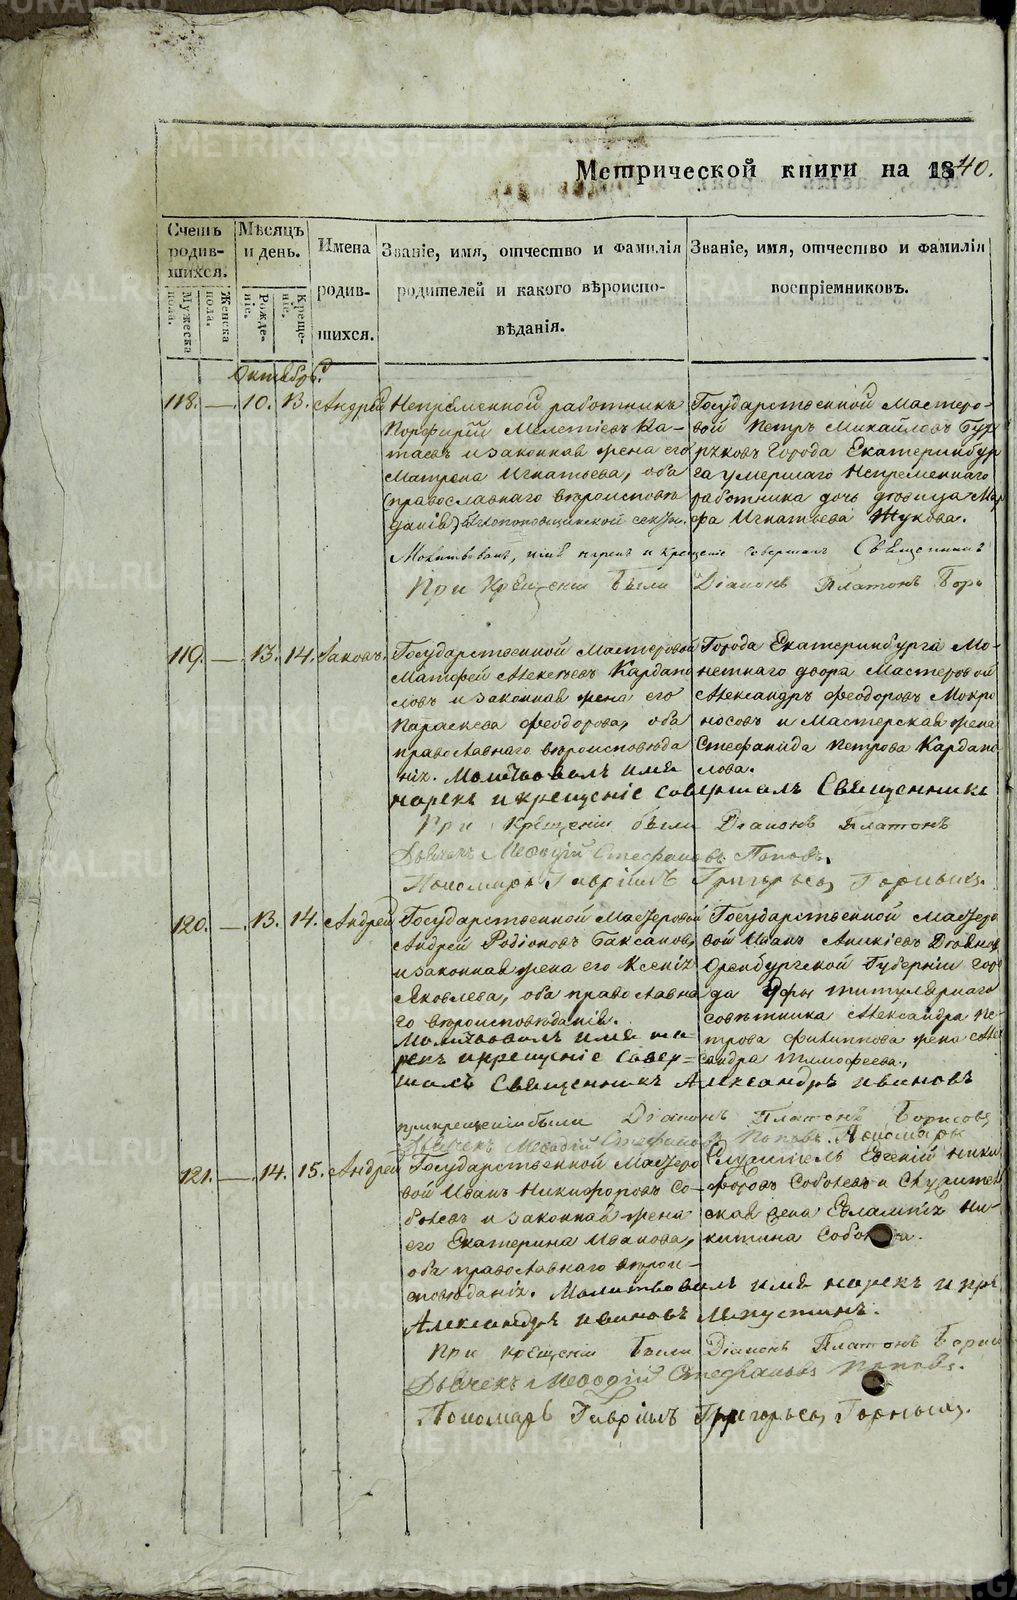 Метрической книги на 1840.
Счетъ родив-шихся.
Мѣсяцъ и день.
Имена родив-шихся.
Званіе, имя, отчество и фамилія родителей и какого вѣроиспо-вѣданія.
Званіе, имя, отчество и фамилія воспріемниковъ.
Мужеска пола.
Женска пола.
Рожде-ніе.
Креще-ніе.
Октябрь.
118. — 10. 13. Андрей
Непремѣнной работникъ
Порфирій Мелетіевъ Ка-
таевъ и законная жена его
Матрена Игнатьева, оба
(православнаго вѣроисповѣ
данія)
Государственной Мастеро-
вой Петръ Михайловъ Бур
рковъ города Екатеринбур
га умершаго Непременнаго
работника дочь девица Мар
фа Игнатьева Жукова.
Молитвовалъ, имя нарекъ и крещеніе совершалъ Священникъ
При крещеніи были Діаконъ Платонъ Бори
119. — 13. 14. Іаковъ.
Государственной Мастеровой
Матфей Алексѣевъ Кардапо
ловъ и законная жена его
Параскева Феодорова, оба
православнаго вѣроисповѣда
нія. Молитвовалъ имя
Города Екатеринбурга Мо-
нетнаго двора Мастеровой
Александръ Феодоровъ Мокро
носовъ и Мастерская жена
Стефанида Петрова Кардапо
лова.
нарекъ и крещеніе совершалъ Священникъ
При крещеніи были Діаконъ Платонъ
Дьячекъ Меѳодій Стефановъ Поповъ.
Пономарь Гавріилъ Григорьевъ Горныхъ.
120. — 13. 14. Андрей
Государственной Мастеровой
Андрей Родіоновъ Баксановъ,
и законная жена его Ксенія
Яковлева, оба православна
го вѣроисповѣданія.
Молитвовалъ имя на-
рекъ и крещеніе совер=
Государственной Мастеро
вой Иванъ Аникіевъ
Оренбургской Губерніи горо
да Уфы титулярнаго
совѣтника Александра Пе-
трова Филиппова жена Алек
сандра Тимофеева.
шалъ Священникъ Александръ Ивановъ
При крещеніи были Діаконъ Платонъ Борисовъ
Дьячекъ Меѳодій Стефановъ Поповъ. Пономарь
121. — 14. 15. Андрей
Государственной Мастеро
вой Иванъ Никифоровъ Со-
болевъ и законная жена
его Екатерина Иванова,
оба православнаго вѣрои-
сповѣданія. Молитвовалъ имя нарекъ и кре
Служитель Евгеній Ники
форовъ Соболевъ и Служитель
ская жена Евлампія Ни-
китина
Александръ Ивановъ
При крещеніи были Діаконъ Платонъ Борис
Дьячекъ Меѳодій Стефановъ Поповъ.
Пономарь Гавріилъ Григорьевъ Горныхъ.
METRIKI.GASO-URAL.RU